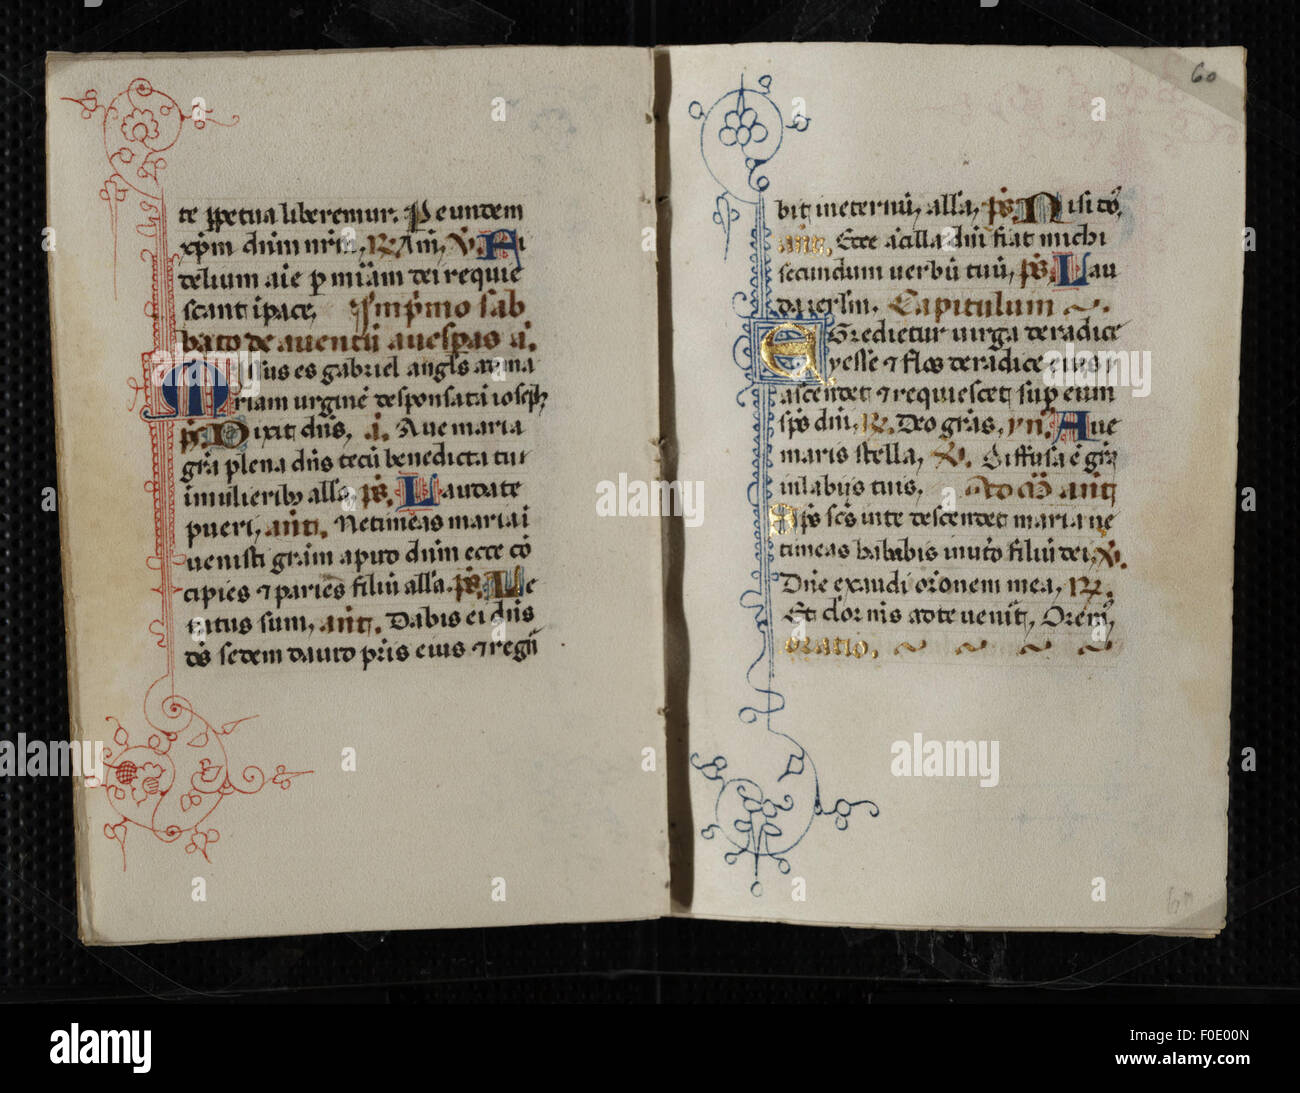 te ꝑpetua liberemur. Per eundem
xp̄m dn̄m nr̄m, R. Am̄, V. Fi
delium aīe ꝑ miām dei requie
scant ī pace, In p̄mo sab
bato de aventū avesꝑas a.
Missus es gabriel angls̄ ad ma
riam v̄rginē desponsatā ioseph
p̄s. Dixit dn̄s, a. Ave maria
grā plena dn̄s tecū benedicta tu i
in mulieribꝫ all̄a, p̄s. Laudate
pueri, an̄t. Ne timeas maria i
venisti grām apud dn̄m ecce cō
cipies ⁊ paries filiū all̄a. p̄s. Le
tatus sum, an̄t. Dabit ei dn̄s
d̄s sedem david p̄ris eius ⁊ regn̄
60
bit in eternū, all̄a, p̄s. Nisi d̄s,
an̄t. Ecce ācilla dn̄i fiat michi
secundum verbū tuū, p̄s. Lau
da ierlm̄. Capitulum
Egredietur virga de radice
yesse ⁊ flos de radice eius
ascendet ⁊ requiescet suꝑ eum
sp̄s dn̄i, R. Deo grās, yn̄. Ave
maris stella, V. Diffusa ē grā
in labijs tuis. ad mā an̄t
Sp̄s scs̄ in te descendet maria ne
timeas habebis in utō filiū dei, V.
Dn̄e exaudi orōnem mea, R.
Et clor m̄s ad te veniāt, Orem̄,
oratio.
alamy stock photo
F0E00N
www.alamy.com